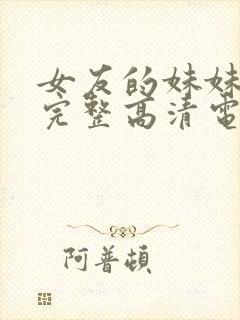 女友的妹妹
完整高清電
阿普頓